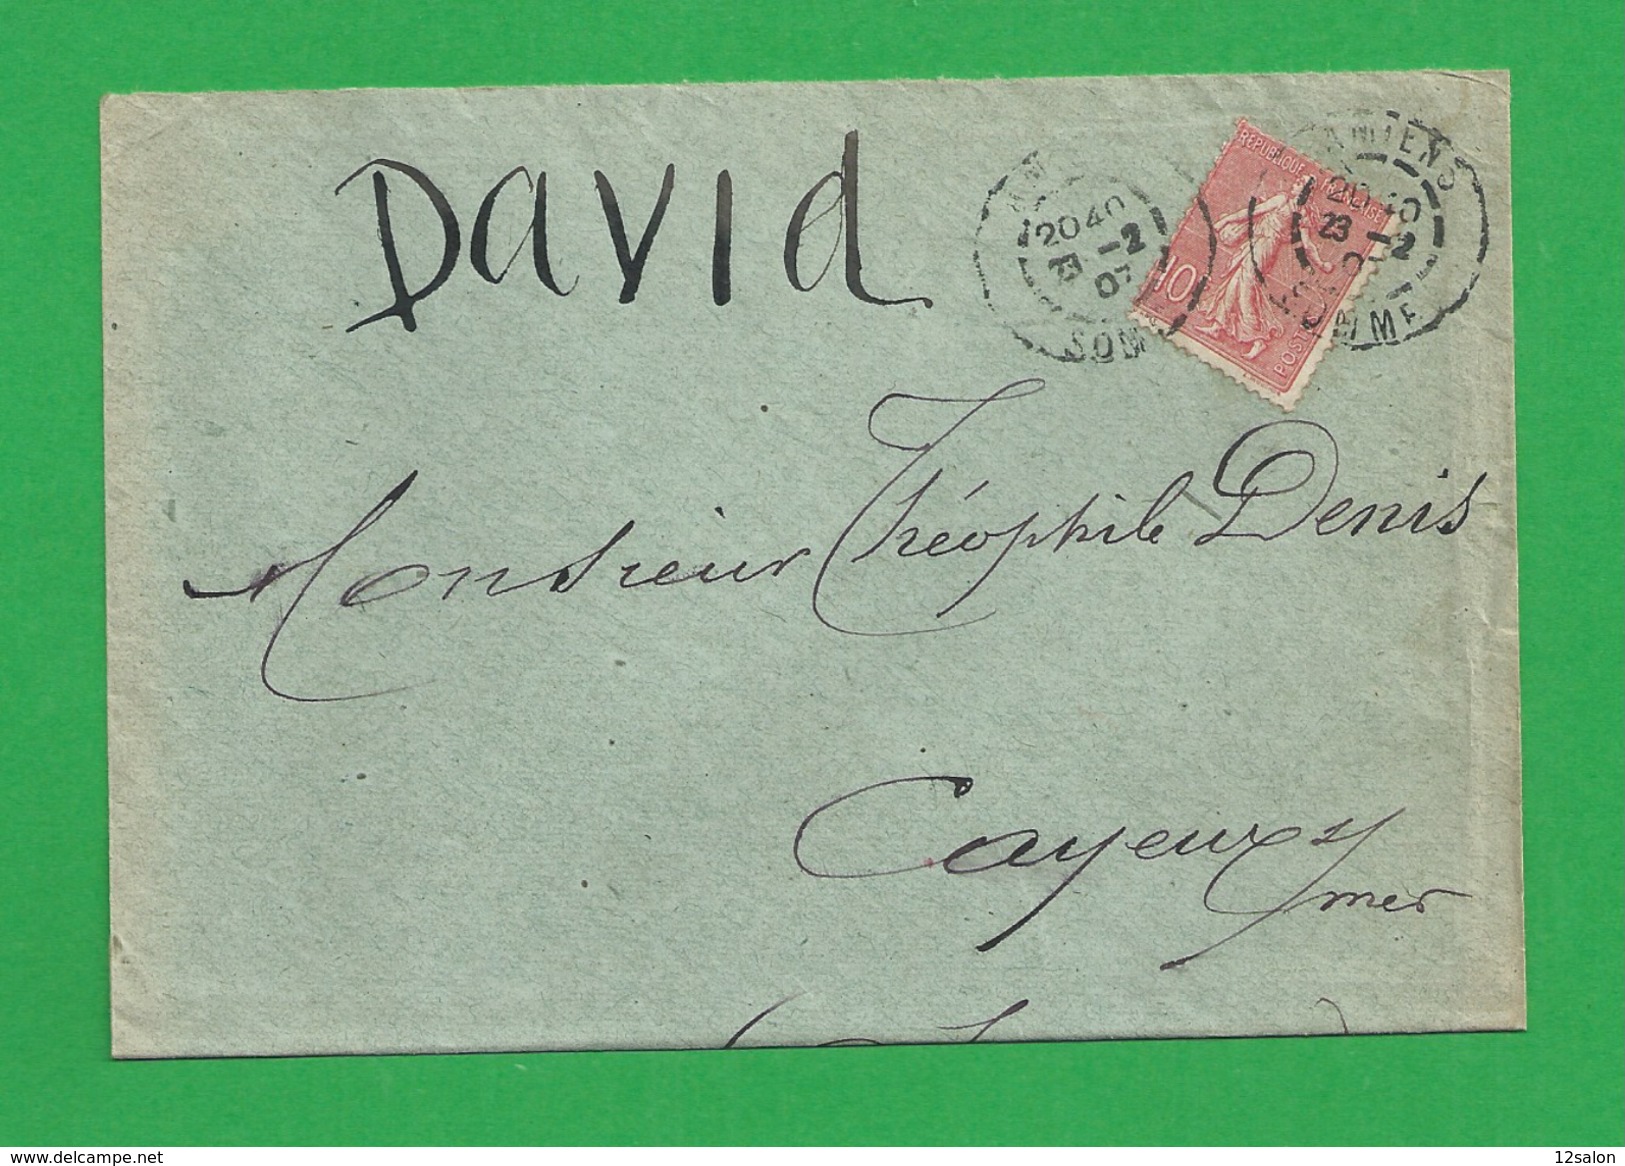 David
AMIENS
2040
23 -2
07
SOMME
RÉPUBLIQUE FRANÇAISE
10
POSTES
Monsieur Théophile Denis
Cayeux s/
mer
www.delcampe.net
12salon